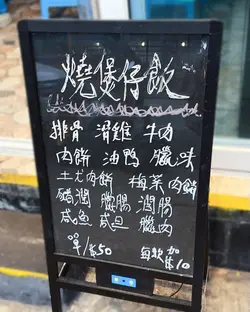 燒煲仔飯
排骨 滑雞 牛肉
肉餅 油鴨 臘味
土尤肉餅 梅菜肉餅
腊潤 臘腸 潤腸
咸魚 咸旦 臘肉
单/$50 每款加$10